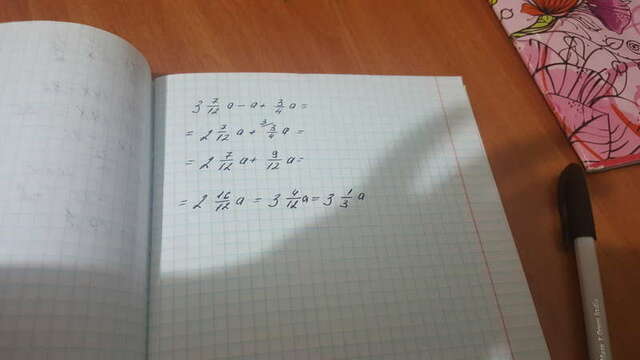 3 7/12 a - a + 3/4 a =
= 2 7/12 a + 3/4 ³ a =
= 2 7/12 a + 9/12 a =
= 2 16/12 a = 3 4/12 a = 3 1/3 a